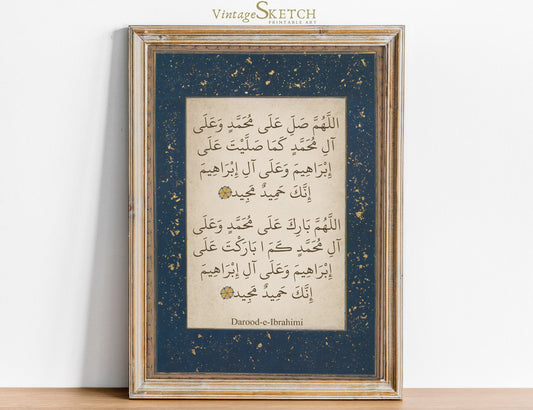 VintageSKETCH
PRINTABLE ART
اللَّهُمَّ صَلِّ عَلَى مُحَمَّدٍ وَعَلَى
آلِ مُحَمَّدٍ كَمَا صَلَّيْتَ عَلَى
إِبْرَاهِيمَ وَعَلَى آلِ إِبْرَاهِيمَ
إِنَّكَ حَمِيدٌ مَجِيد
اللهُمَّ بَارِكْ عَلَى مُحَمَّدٍ وَعَلَى
آلِ مُحَمَّدٍ كَمَ ا بَارَكْتَ عَلَى
إِبْرَاهِيمَ وَعَلَى آلِ إِبْرَاهِيمَ
إِنَّكَ حَمِيدٌ مَجِيد
Darood-e-Ibrahimi